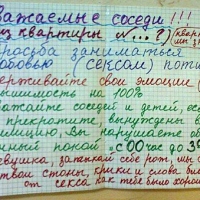 важаемые соседи!!!
из квартиры №...?) (кварт
росьба заниматься
юбовью (сексом) поти
ерживайте свои эмоции
ышимость на 100%
ажайте соседей и детей, ес
прекратите, вынуждены в
илицию, вы нарушаете об
нный покой с 00 час до
вушка, затыкай себе рот, мы с
твои стоны, крики и слова бл
от секса как тебе было хоро